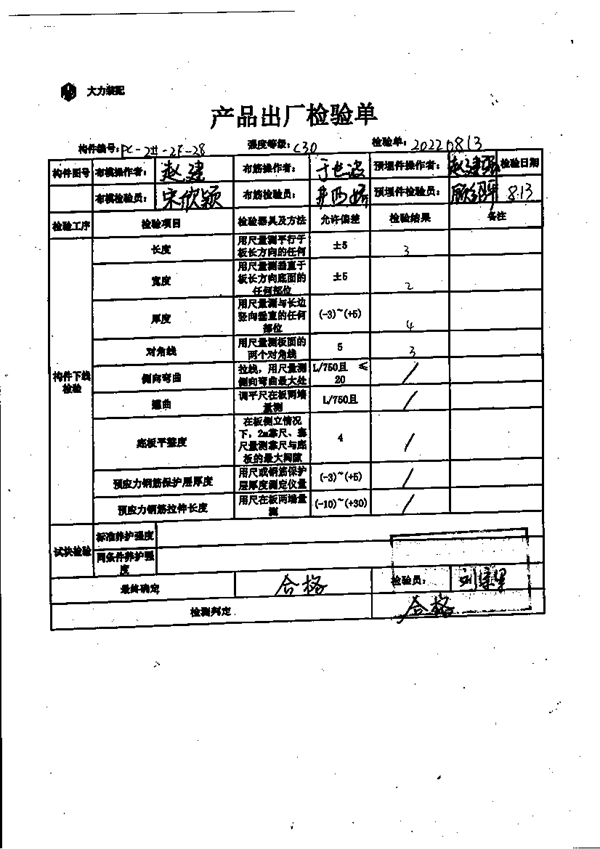 大力装配
产品出厂检验单
构件编号: PC-2#-2F-28 强度等级: C30 检验单: 20220813
构件图号 布模操作者: 赵建 布筋操作者: 预埋件操作者: 赵建强 检验日期
布模检验员: 宋欣颖 布筋检验员: 预埋件检验员: 8.13
检验工序 检验项目 检验器具及方法 允许偏差 检验结果 备注
构件下线检验
长度 用尺量测平行于板长方向的任何 ±5 3
宽度 用尺量测垂直于板长方向底面的任何部位 ±5 2
厚度 用尺量测与长边竖向垂直的任何部位 (-3)~(+5) 4
对角线 用尺量测板面的两个对角线 5 3
侧向弯曲 拉线，用尺量测侧向弯曲最大处 L/750且 ≤20 /
翘曲 调平尺在板两端量测 L/750且 /
底板平整度 在板侧立情况下，2m靠尺、塞尺量测靠尺与底板的最大间隙 4 /
预应力钢筋保护层厚度 用尺或钢筋保护层厚度测定仪量 (-3)~(+5) /
预应力钢筋拉伸长度 用尺在板两端量测 (-10)~(+30) /
试块检验 标准养护强度
同条件养护强度
最终确定 合格 检验员:
检测判定 合格